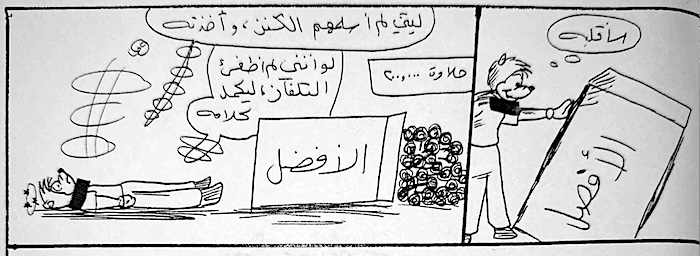 سأقلبه
الأفضل
ليتني لم أسلمهم الكنز، وأخذته
لو أنني لم أطفئ
التلفاز، ليكمل
كلامه
حلاوة
الأفضل